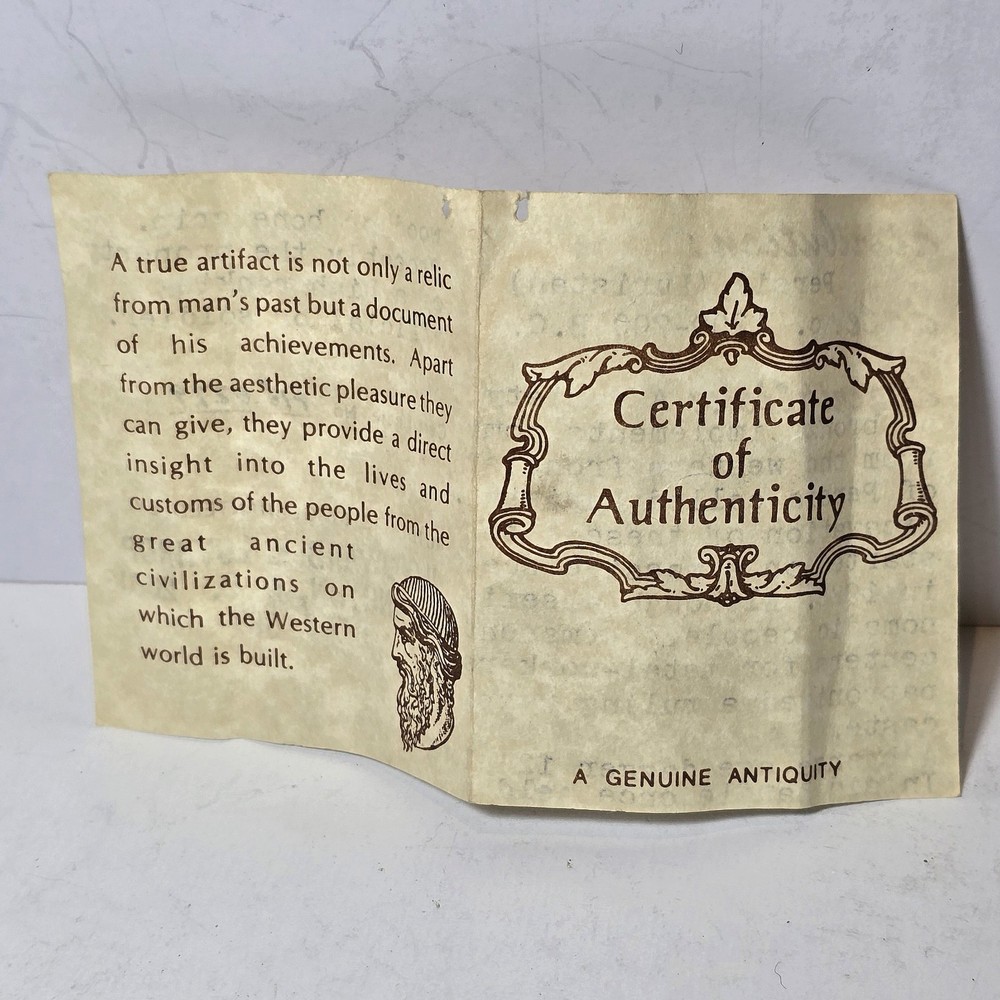 A true artifact is not only a relic
from man's past but a document
of his achievements. Apart
from the aesthetic pleasure they
can give, they provide a direct
insight into the lives and
customs of the people from the
great ancient
civilizations on
which the Western
world is built.
Certificate
of
Authenticity
A GENUINE ANTIQUITY